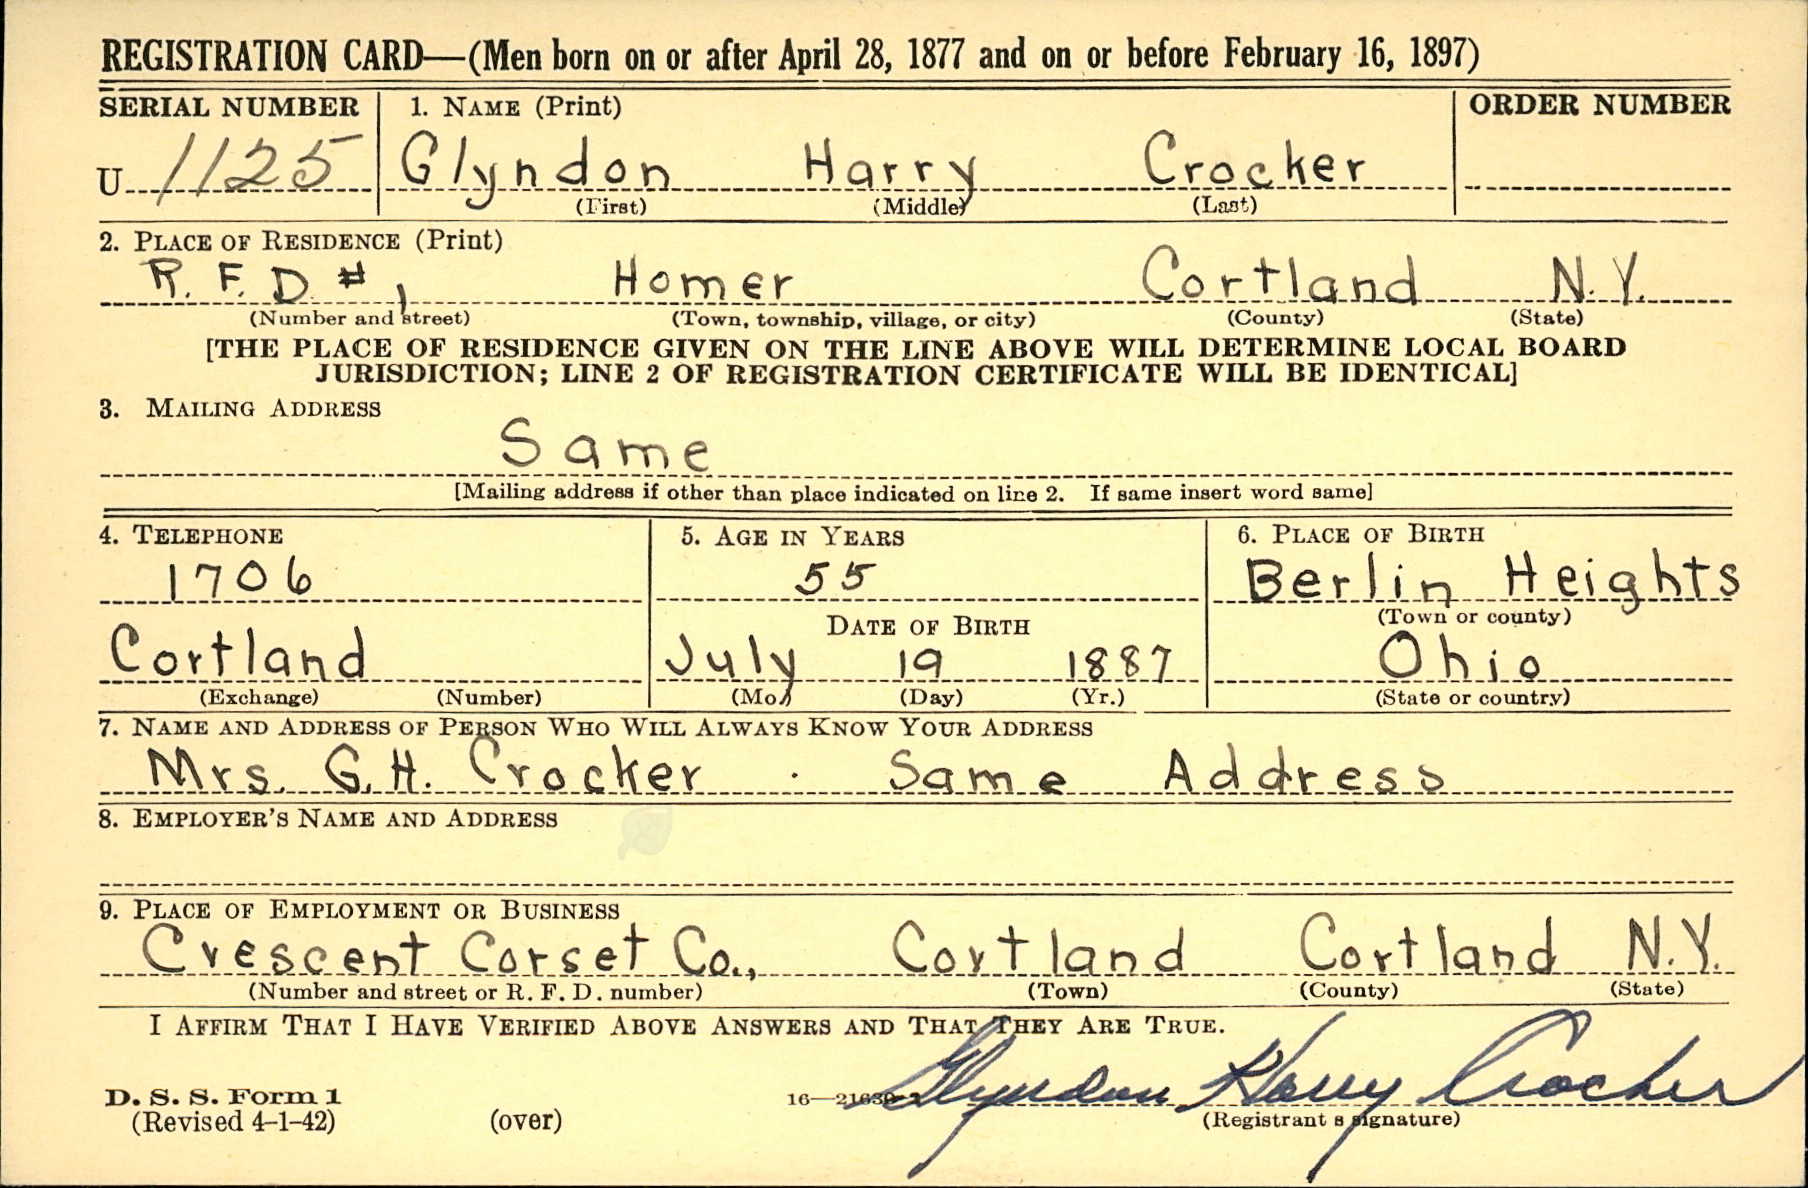 REGISTRATION CARD—(Men born on or after April 28, 1877 and on or before February 16, 1897)
SERIAL NUMBER 1. NAME (Print) ORDER NUMBER
U 1125 Glyndon Harry Crocker
(First) (Middle) (Last)
2. PLACE OF RESIDENCE (Print)
R. F. D. # 1 Homer Cortland N. Y.
(Number and street) (Town, township, village, or city) (County) (State)
[THE PLACE OF RESIDENCE GIVEN ON THE LINE ABOVE WILL DETERMINE LOCAL BOARD
JURISDICTION; LINE 2 OF REGISTRATION CERTIFICATE WILL BE IDENTICAL]
3. MAILING ADDRESS
Same
[Mailing address if other than place indicated on line 2. If same insert word same]
4. TELEPHONE 5. AGE IN YEARS 6. PLACE OF BIRTH
1706 55 Berlin Heights
(Town or county)
DATE OF BIRTH
Cortland July 19 1887 Ohio
(Exchange) (Number) (Mo.) (Day) (Yr.) (State or country)
7. NAME AND ADDRESS OF PERSON WHO WILL ALWAYS KNOW YOUR ADDRESS
Mrs. G. H. Crocker . Same Address
8. EMPLOYER'S NAME AND ADDRESS
9. PLACE OF EMPLOYMENT OR BUSINESS
Crescent Corset Co., Cortland Cortland N. Y.
(Number and street or R. F. D. number) (Town) (County) (State)
I AFFIRM THAT I HAVE VERIFIED ABOVE ANSWERS AND THAT THEY ARE TRUE.
D. S. S. Form 1 Glyndon Harry Crocker
(Revised 4-1-42) (over) (Registrant s signature)